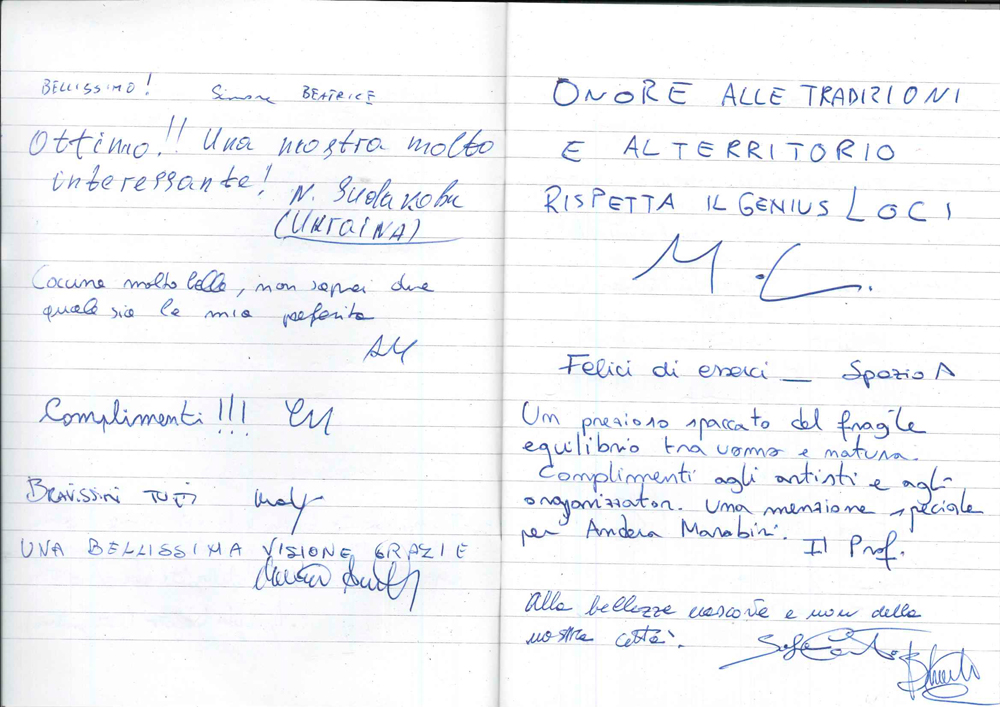 BELLISSIMO! Simone BEATRICE
Ottimo!! Una mostra molto
interessante!
N. Sudakova
(UKRAINA)
molto belle, non saprei dire
quale sia la mia preferita
AM
Complimenti!!!
BRAVISSIMI TUTTI
UNA BELLISSIMA VISIONE GRAZIE
ONORE ALLE TRADIZIONI
E AL TERRITORIO
RISPETTA IL GENIUS LOCI
M.C.
Felici di esserci _ Spazio A
Um prezioso spaccato del fragile
equilibrio tra uomo e natura.
Complimenti agli artisti e agli
organizzator. Una menzione speciale
per Andrea Marabini.
Il Prof.
Alla bellezze nascoste e non della
nostra città.